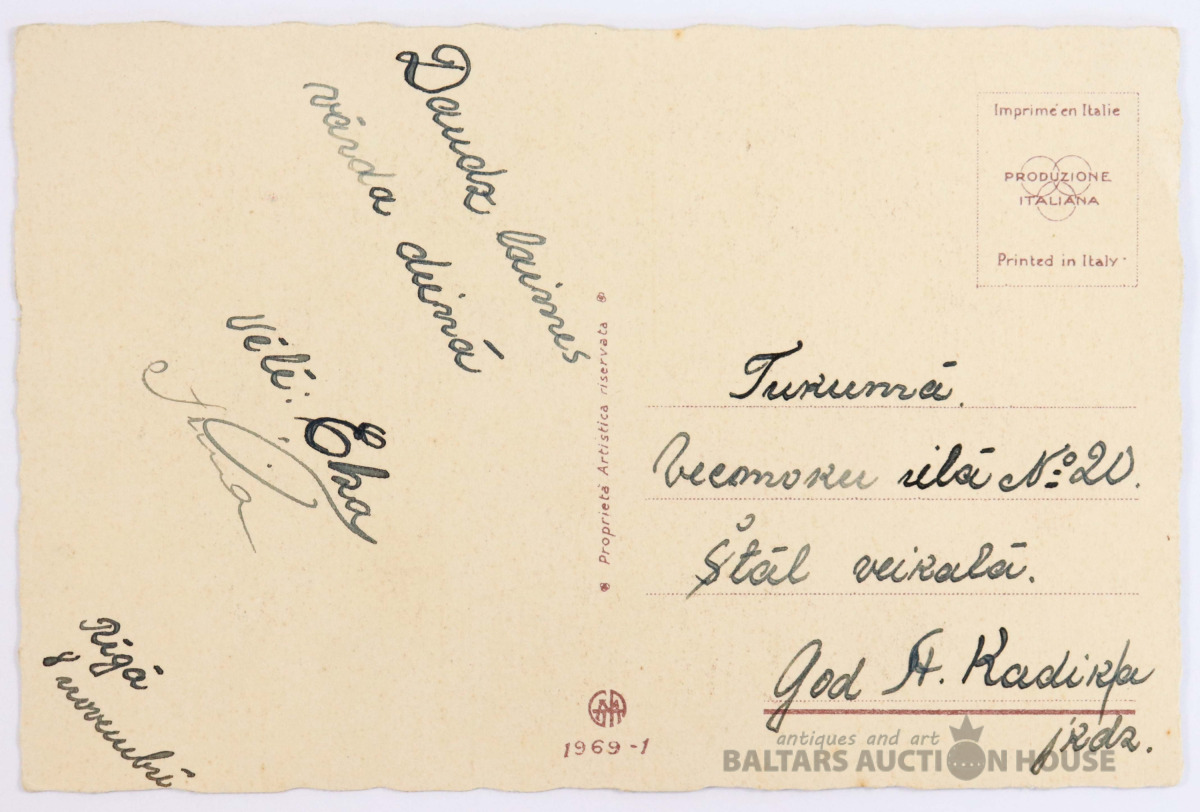 Daudz laimes
vārda dienā
vēlē: Elza
Rīgā
8 novembrī
Proprietà Artistica riservata
1969-1
Imprimé en Italie
PRODUZIONE
ITALIANA
Printed in Italy
Tukumā.
Vecmoku ielā No 20.
Štāl veikalā.
God A. Kadiķa
jkdz.
antiques and art
BALTARS AUCTION HOUSE